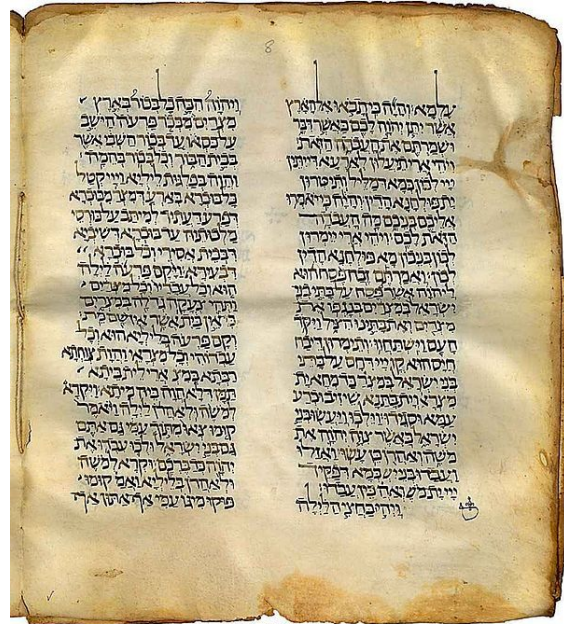 8
עלמא והיה כי תבאו אל הארץ
אשר יתן יהוה לכם כאשר דבר
ושמרתם את העבדה הזאת
ויהי ארי תיעלון לארעא דייתין
ייי לכון כמא דמליל ותיטרון
ית פולחנא הדין והיה כי יאמרו
אליכם בניכם מה העבדה
הזאת לכם ויהי ארי יימרון
לכון בניכון מא פולחנא הדין
לכון ואמרתם זבח פסח הוא
ליהוה אשר פסח על בתי בני
ישראל במצרים בנגפו את
מצרים ואת בתינו הציל ויקד
העם וישתחוו ותימרון דיבח
חיס הוא קדם ייי דחס על בתי
בני ישראל במצרים כד מחא ית
מצראי וית בתנא שיזיב וכרע
עמא וסגידו וילכו ויעשו בני
ישראל כאשר צוה יהוה את
משה ואהרן כן עשו ואזלו
ועבדו בני יש כמא דפקיד
ייי ית מש ואה כין עבדו
ויהי בחצי הלילה
ויהוה הכה כל בכור בארץ
מצרים מבכר פרעה הישב
על כסאו עד בכור השבי אשר
בבית הבור וכל בכור בהמה
והוה בפלגות ליליא וייי קטל
כל בוכרא בארעא דמצר מבוכרא
דפרעה דעתיד למיתב על כורסי
מלכותיה עד בוכרא דשיביא
דבבית אסירי וכל בוכרא
דבעירא ויקם פרעה לילה
הוא וכל עבדיו וכל מצרים
ותהי צעקה גדלה במצרים
כי אין בית אשר אין שם מת
וקם פרעה בליליא הוא וכל
עבדוהי וכל מצראי והות צוחתא
רבתא במצ ארי לית ביתא
תמן דלא הוה ביה מיתא ויקרא
למשה ולאהרן לילה ויאמר
קומו צאו מתוך עמי גם אתם
גם בני ישראל ולכו עבדו את
יהוה כדברכם וקרא למשה
ולאהרן בליליא ואמ קומו
פוקו מיגו עמי אף אתון אף